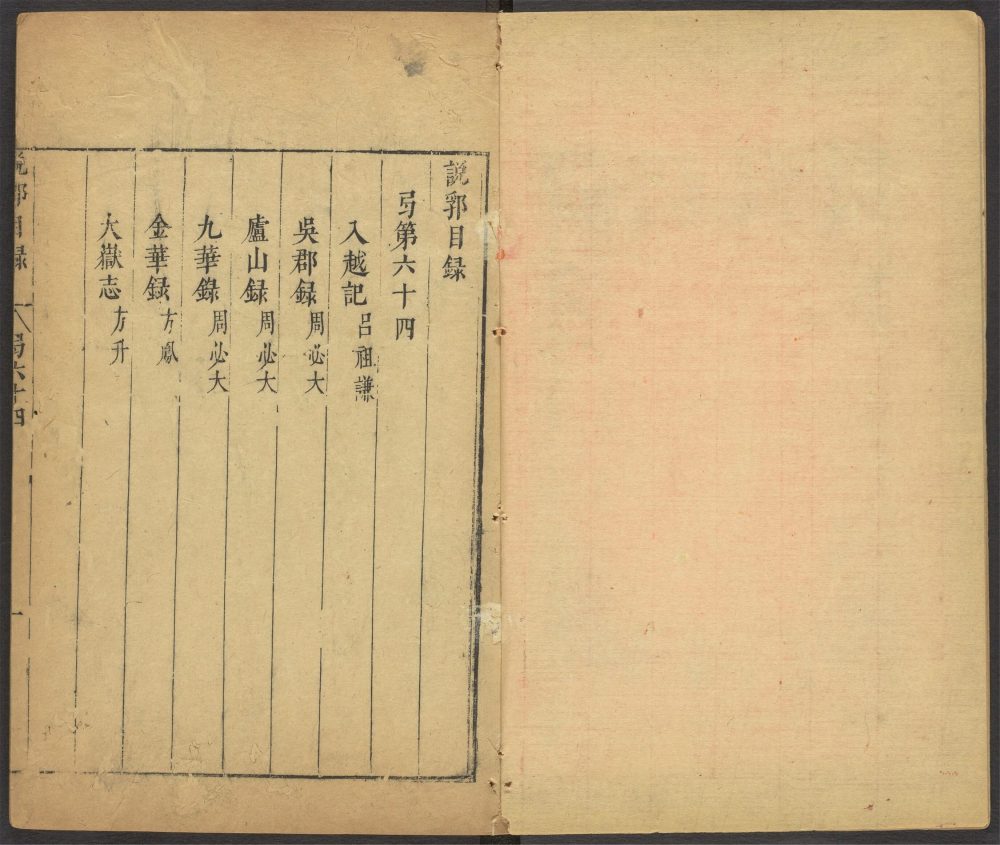 說郛目録
弓第六十四
入越記 呂祖謙
吳郡録 周必大
廬山録 周必大
九華錄 周必大
金華録 方鳳
大嶽志 方升
說郛目録 弓六十四 一